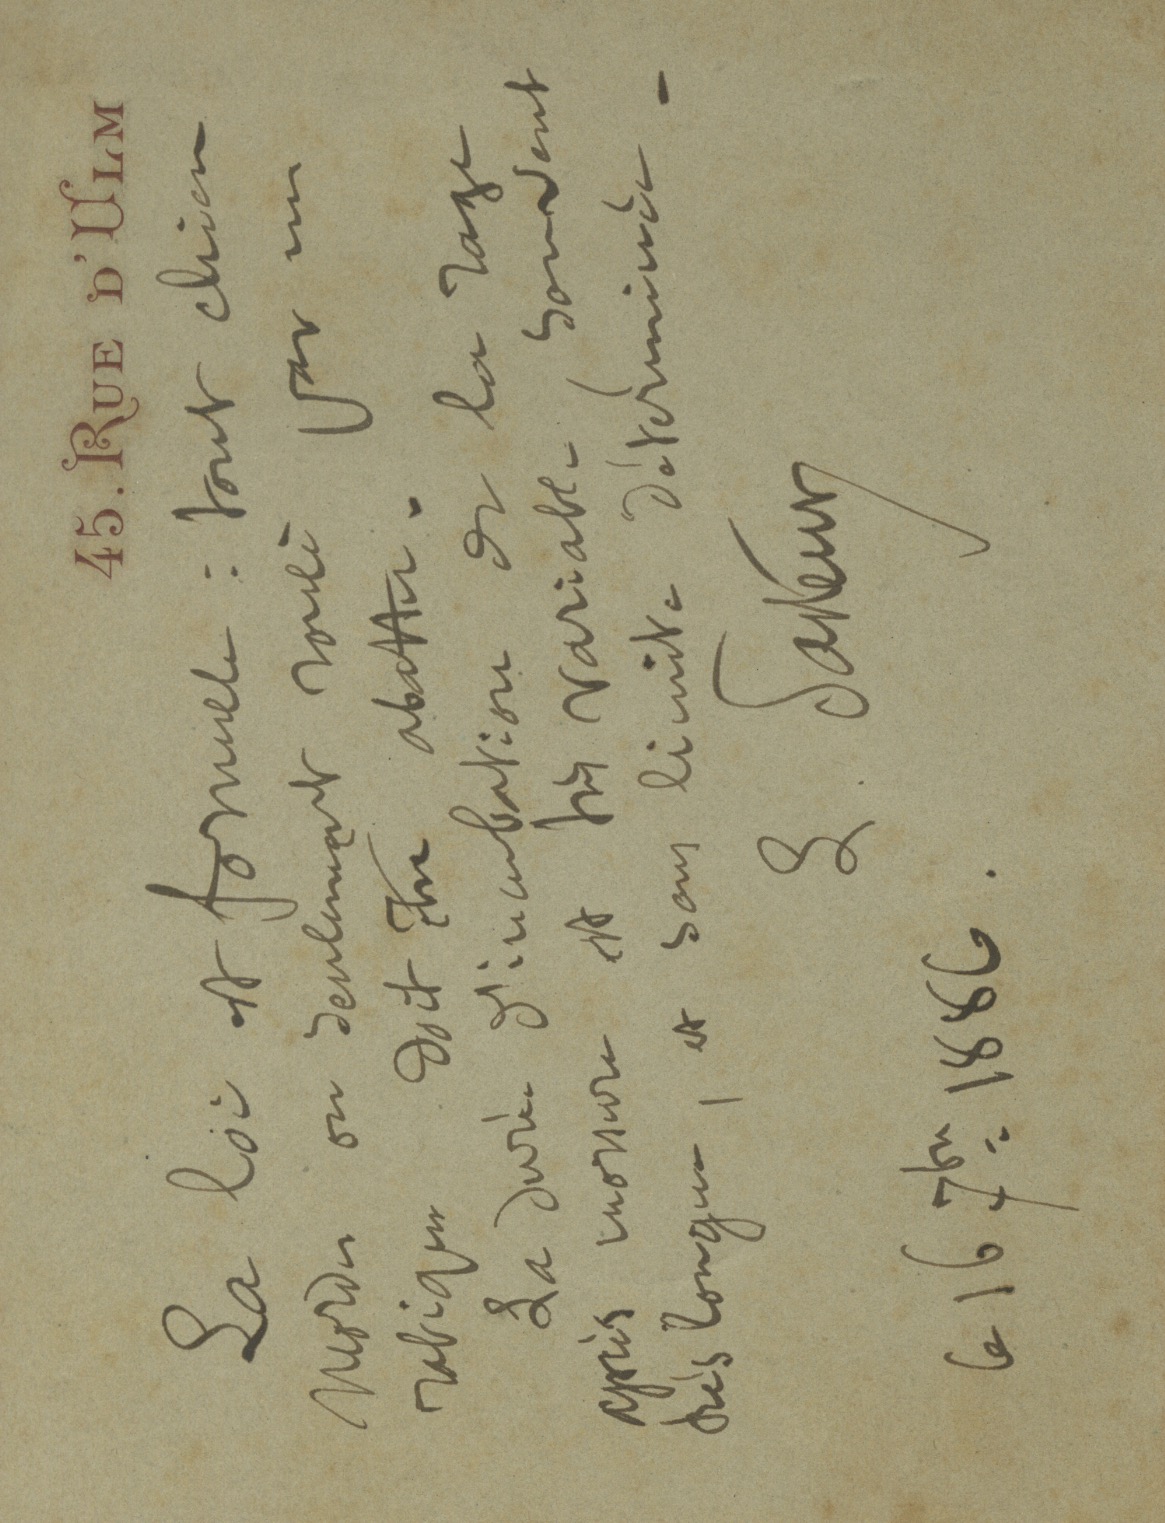 45. RUE D'ULM
La loi est formelle : tout chien
mordu ou seulement roulé par un
rabique doit être abattu.
La durée d'incubation de la rage
après morsure est très variable souvent
très longue, et sans limite déterminée -
L. Pasteur
le 16 7bre 1886.